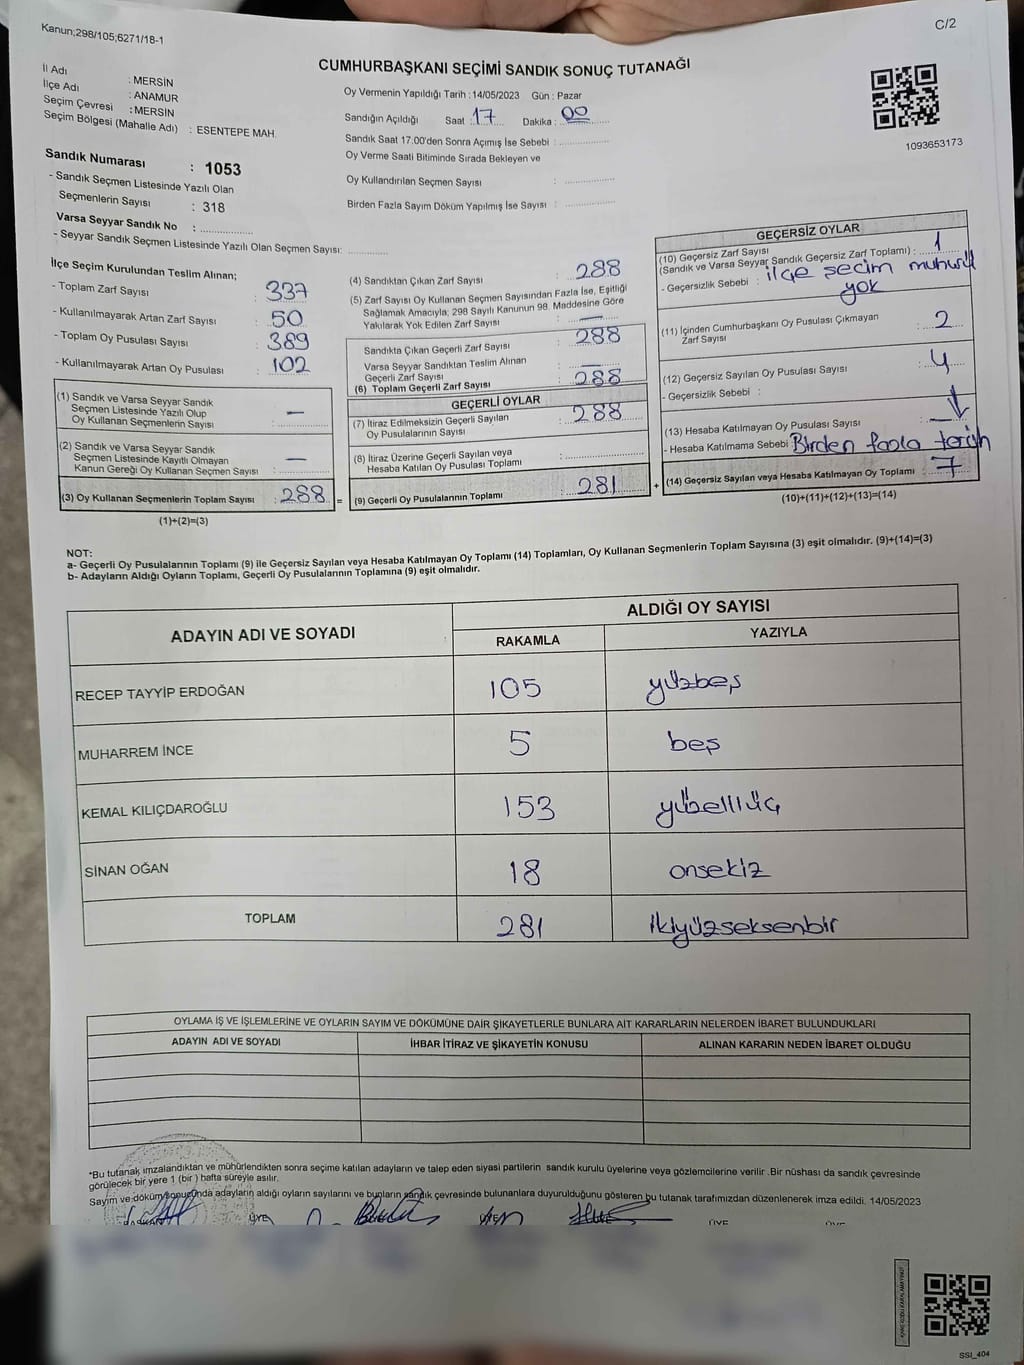 Kanun;298/105;6271/18-1
C/2
CUMHURBAŞKANI SEÇİMİ SANDIK SONUÇ TUTANAĞI
İl Adı : MERSİN
İlçe Adı : ANAMUR
Seçim Çevresi : MERSİN
Seçim Bölgesi (Mahalle Adı) : ESENTEPE MAH.
Sandık Numarası : 1053
- Sandık Seçmen Listesinde Yazılı Olan
Seçmenlerin Sayısı : 318
Varsa Seyyar Sandık No : ..............
- Seyyar Sandık Seçmen Listesinde Yazılı Olan Seçmen Sayısı: ..............
Oy Vermenin Yapıldığı Tarih : 14/05/2023 Gün : Pazar
Sandığın Açıldığı Saat : 17 Dakika : 00
Sandık Saat 17.00'den Sonra Açımış İse Sebebi : ..............
Oy Verme Saati Bitiminde Sırada Bekleyen ve
Oy Kullandırılan Seçmen Sayısı : ..............
Birden Fazla Sayım Döküm Yapılmış İse Sayısı : ..............
1093653173
İlçe Seçim Kurulundan Teslim Alınan;
- Toplam Zarf Sayısı : 337
- Kullanılmayarak Artan Zarf Sayısı : 50
- Toplam Oy Pusulası Sayısı : 389
- Kullanılmayarak Artan Oy Pusulası : 102
(1) Sandık ve Varsa Seyyar Sandık
Seçmen Listesinde Yazılı Olup
Oy Kullanan Seçmenlerin Sayısı : —
(2) Sandık ve Varsa Seyyar Sandık
Seçmen Listesinde Kayıtlı Olmayan
Kanun Gereği Oy Kullanan Seçmen Sayısı : —
(3) Oy Kullanan Seçmenlerin Toplam Sayısı : 288 =
(1)+(2)=(3)
(4) Sandıktan Çıkan Zarf Sayısı : 288
(5) Zarf Sayısı Oy Kullanan Seçmen Sayısından Fazla İse, Eşitliği
Sağlamak Amacıyla; 298 Sayılı Kanunun 98. Maddesine Göre
Yakılarak Yok Edilen Zarf Sayısı : —
Sandıkta Çıkan Geçerli Zarf Sayısı : 288
Varsa Seyyar Sandıktan Teslim Alınan
Geçerli Zarf Sayısı : —
(6) Toplam Geçerli Zarf Sayısı : 288
GEÇERLİ OYLAR
(7) İtiraz Edilmeksizin Geçerli Sayılan
Oy Pusulalarının Sayısı : 288
(8) İtiraz Üzerine Geçerli Sayılan veya
Hesaba Katılan Oy Pusulası Toplamı : ..............
(9) Geçerli Oy Pusulalarının Toplamı : 281 +
GEÇERSİZ OYLAR
(10) Geçersiz Zarf Sayısı
(Sandık ve Varsa Seyyar Sandık Geçersiz Zarf Toplamı) : 1
- Geçersizlik Sebebi : ilçe seçim mührü
yok
(11) İçinden Cumhurbaşkanı Oy Pusulası Çıkmayan
Zarf Sayısı : 2
(12) Geçersiz Sayılan Oy Pusulası Sayısı : 4
- Geçersizlik Sebebi :
(13) Hesaba Katılmayan Oy Pusulası Sayısı :
- Hesaba Katılmama Sebebi : Birden fazla tercih
(14) Geçersiz Sayılan veya Hesaba Katılmayan Oy Toplamı : 7
(10)+(11)+(12)+(13)=(14)
NOT:
a- Geçerli Oy Pusulalarının Toplamı (9) ile Geçersiz Sayılan veya Hesaba Katılmayan Oy Toplamı (14) Toplamları, Oy Kullanan Seçmenlerin Toplam Sayısına (3) eşit olmalıdır. (9)+(14)=(3)
b- Adayların Aldığı Oyların Toplamı, Geçerli Oy Pusulalarının Toplamına (9) eşit olmalıdır.
ADAYIN ADI VE SOYADI ALDIĞI OY SAYISI
RAKAMLA YAZIYLA
RECEP TAYYİP ERDOĞAN 105 yüzbeş
MUHARREM İNCE 5 beş
KEMAL KILIÇDAROĞLU 153 yübelliüç
SİNAN OĞAN 18 onsekiz
TOPLAM 281 ikiyüzseksenbir
OYLAMA İŞ VE İŞLEMLERİNE VE OYLARIN SAYIM VE DÖKÜMÜNE DAİR ŞİKAYETLERLE BUNLARA AİT KARARLARIN NELERDEN İBARET BULUNDUKLARI
ADAYIN ADI VE SOYADI İHBAR İTİRAZ VE ŞİKAYETİN KONUSU ALINAN KARARIN NEDEN İBARET OLDUĞU
*Bu tutanak imzalandıktan ve mühürlendikten sonra seçime katılan adayların ve talep eden siyasi partilerin sandık kurulu üyelerine veya gözlemcilerine verilir .Bir nüshası da sandık çevresinde
görülecek bir yere 1 (bir ) hafta süreyle asılır.
Sayım ve döküm sonucunda adayların aldığı oyların sayılarını ve bunların sandık çevresinde bulunanlara duyurulduğunu gösteren bu tutanak tarafımızdan düzenlenerek imza edildi. 14/05/2023
BAŞKAN ÜYE ÜYE ÜYE
SSI_404